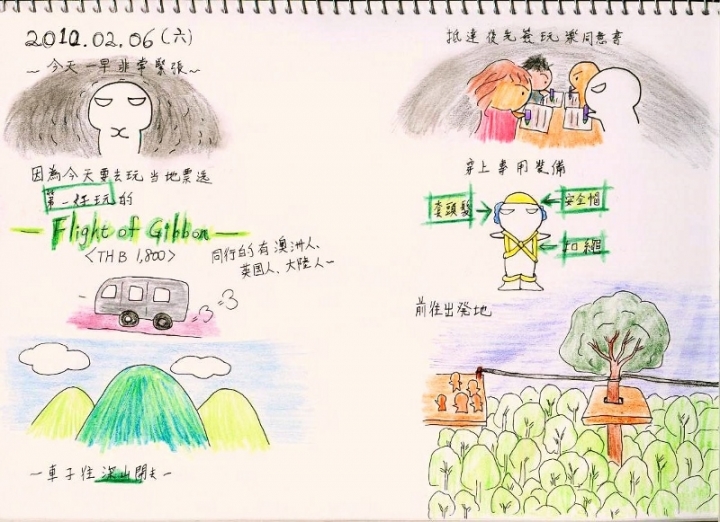 2010.02.06 (六)
~今天一早非常緊張~
因為今天要去玩當地票選
第一好玩的
Flight of Gibbon
<THB 1,800>
同行的有澳洲人、
英国人、大陸人~
~車子往深山開去~
抵達後先簽玩樂同意書
穿上專用裝備
套頭髮
安全帽
扣繩
前往出発地